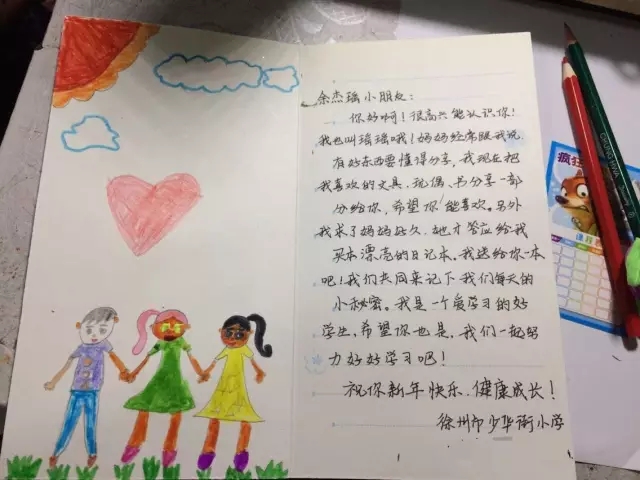 余杰瑶小朋友:
你好啊!很高兴能认识你!
我也叫瑶瑶哦!妈妈经常跟我说
有好东西要懂得分享,我现在把
我喜欢的文具、玩偶、书分享一部
分给你,希望你能喜欢。另外
我求了妈妈好久,她才答应给我
买本漂亮的日记本,我送给你一本
吧!我们共同来记下我们每天的
小秘密。我是一个爱学习的好
学生,希望你也是,我们一起努
力好好学习吧!
祝你新年快乐、健康成长!
徐州市少华街小学
疯狂